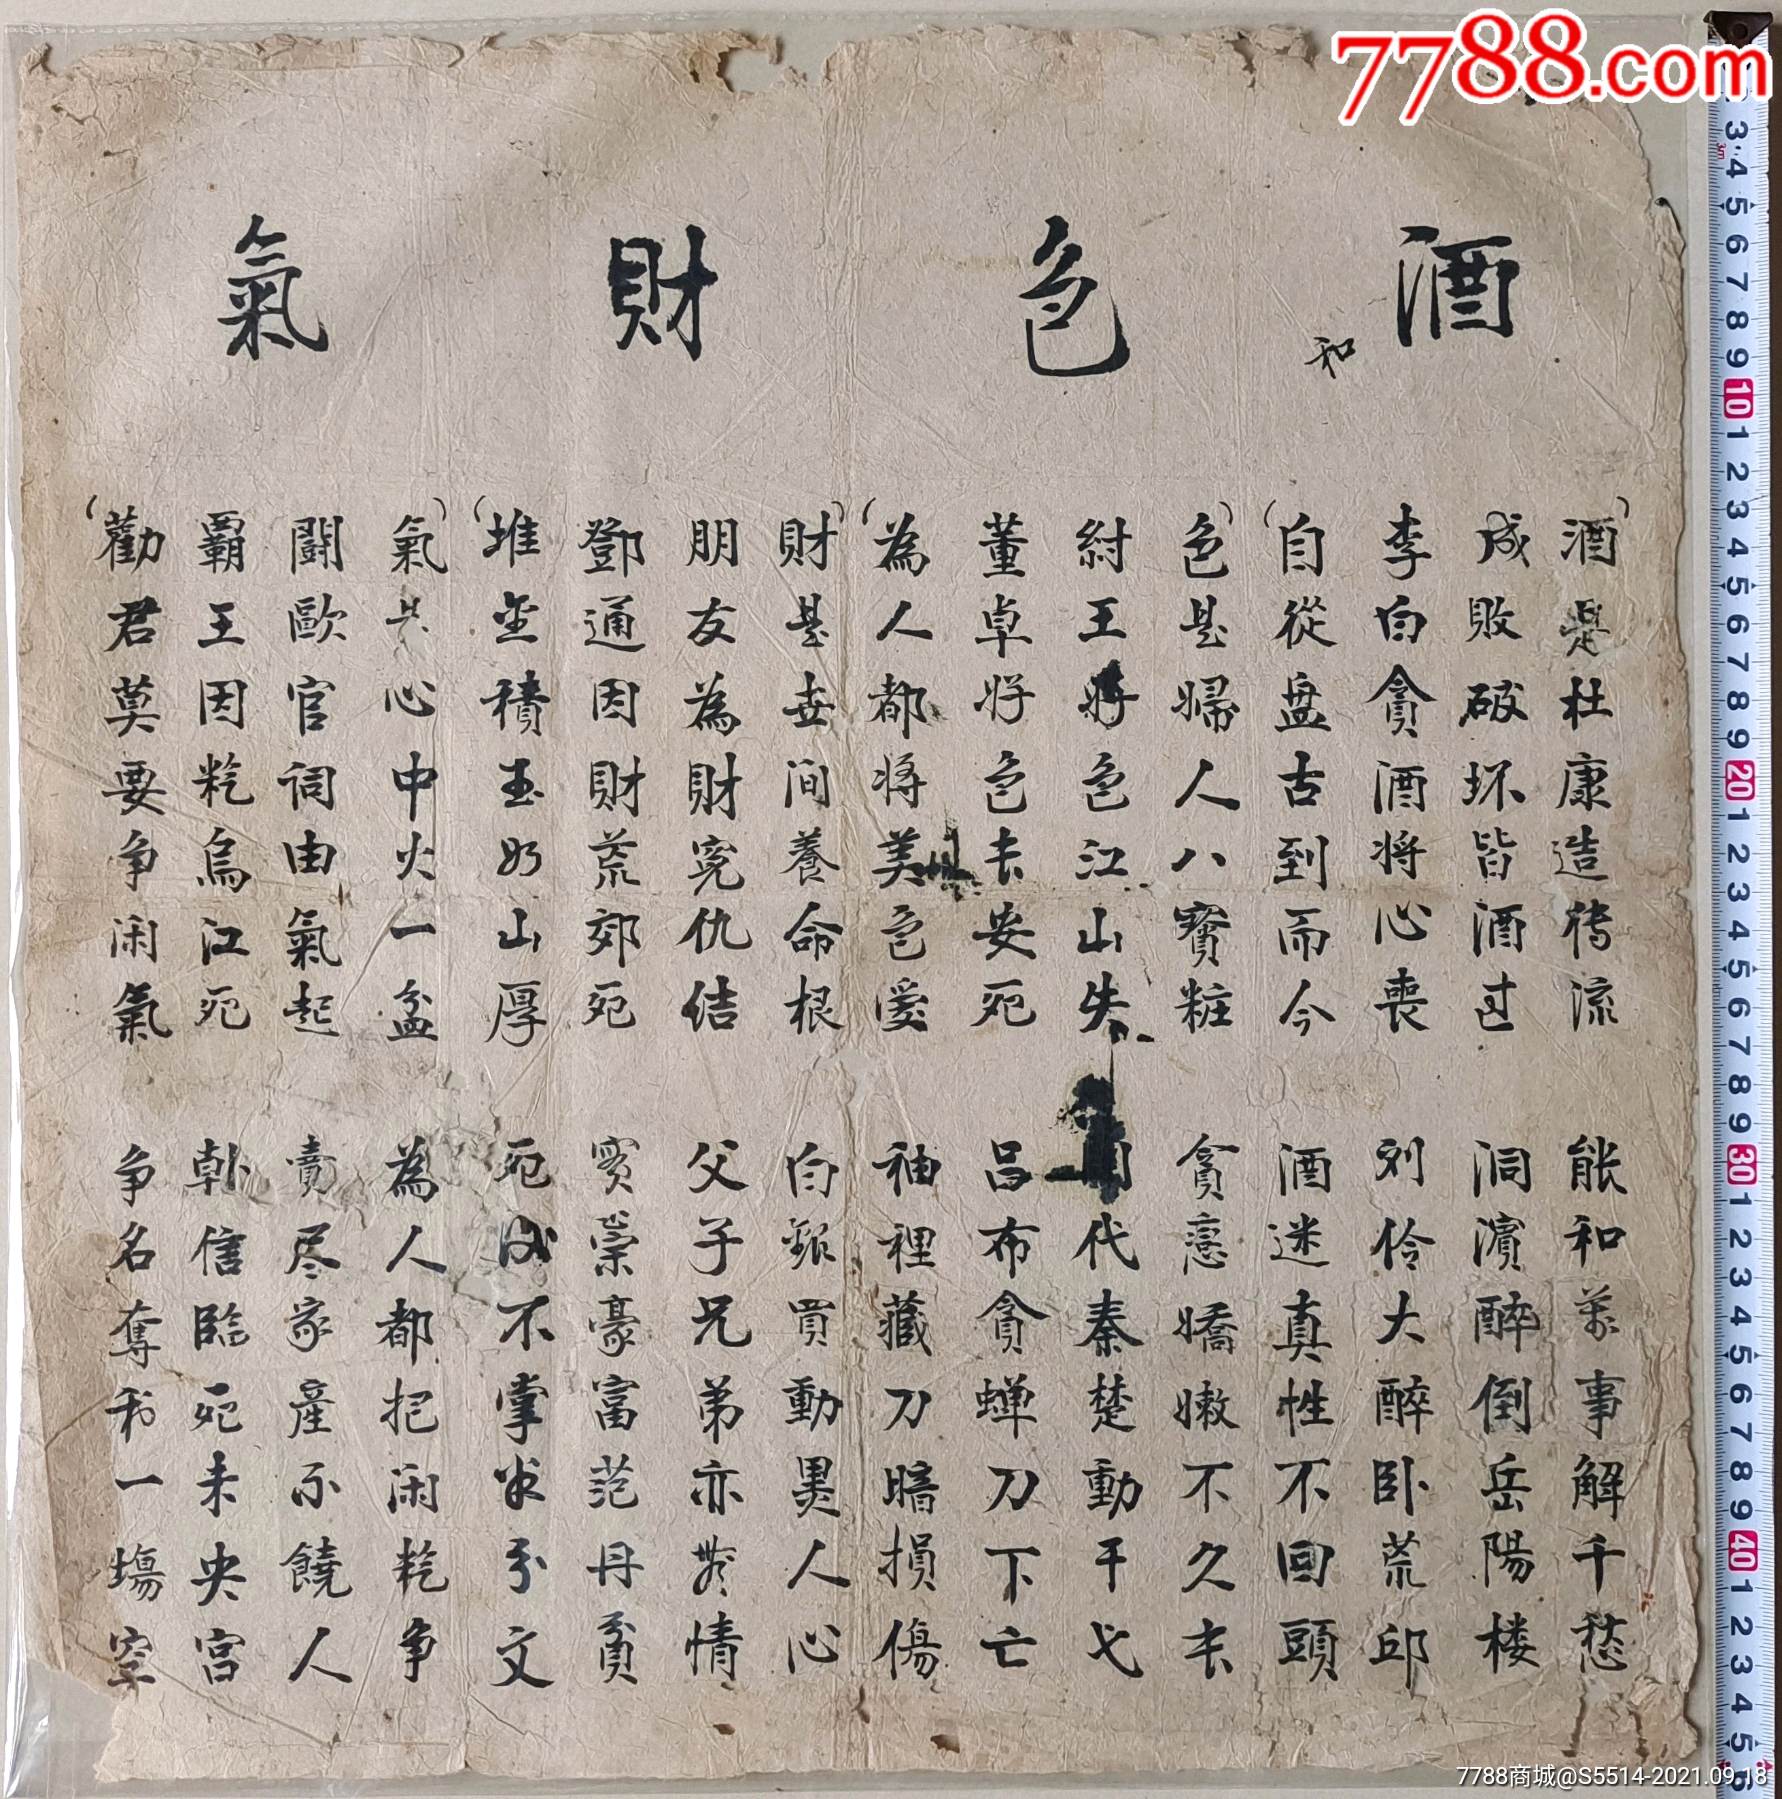 酒 色 財 氣
和
酒是杜康造傳流 能和萬事解千愁
成敗破坏皆酒过 洞濵醉倒岳陽楼
李白貪酒将心喪 刘伶大醉卧荒邱
自從盘古到而今 酒迷真性不回頭
色是婦人八寳粧 貪恋嬌嫩不久長
紂王好色江山失 代秦楚動干戈
董卓好色長安死 吕布貪蝉刀下亡
為人都将美色愛 袖裡藏刀暗損傷
財是世间養命根 白銀買動黑人心
朋友為財寃仇结 父子兄弟亦無情
鄧通因財荒郊死 崇豪富范丹貧
堆金積玉如山厚 死後不掌半分文
氣是心中火一盆 為人都把闲氣争
闘歐官词由氣起 賣尽家產不饒人
霸王因氣烏江死 韩信臨死未央宫
勸君莫要争闲氣 争名奪利一塲空
7788.com
7788商城@S5514-2021.09.18